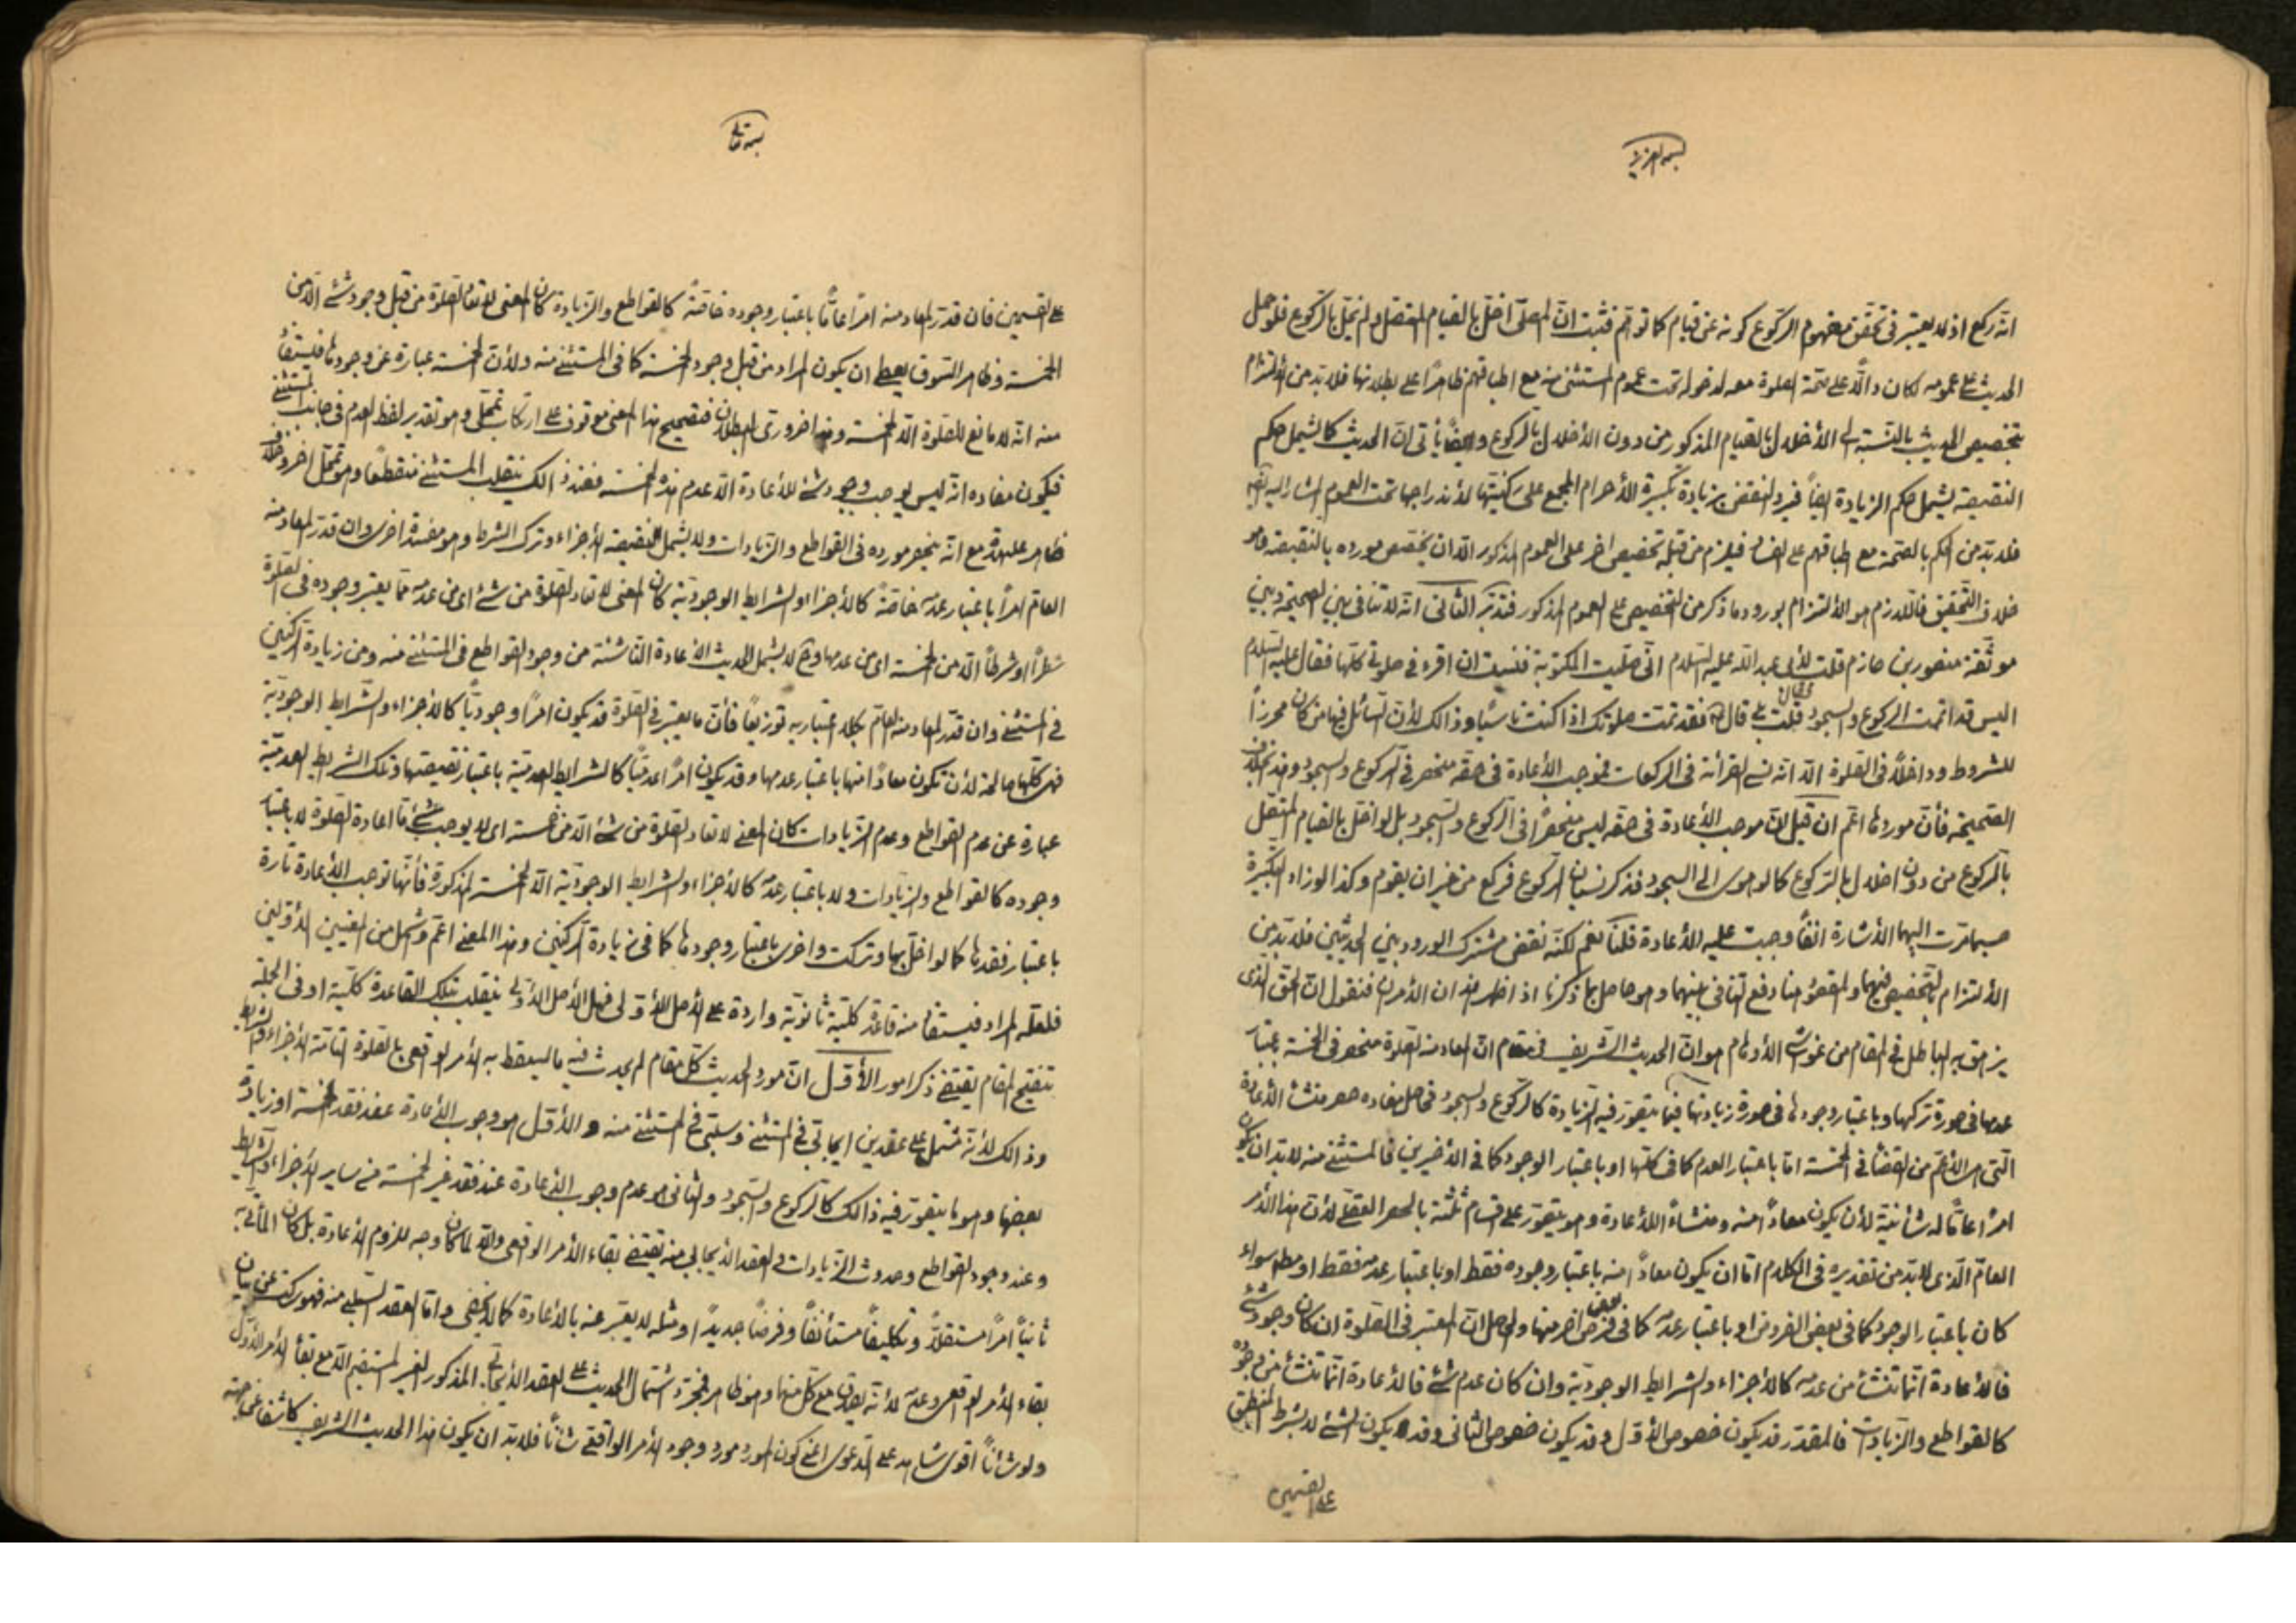 بسمه العزيز
انه ركع اذ لا يعتبر فى تحقق مفهوم الركوع كونه عن قيام كما توهم فثبت ان المصلى اخل بالقيام المتصل و لم يخل بالركوع فلو حمل
الحديث على عمومه لكان دالا على صحة الصلوة معه لدخوله تحت عموم المستثنى منه مع اطباقهم ظاهرا على بطلانها فلا بد من الالتزام
بتخصيص الحديث بالنسبة الى الأخلال بالقيام المذكور من دون الأخلال بالركوع و ايضا يأتى ان الحديث كما يشمل حكم
النقيصة يشمل حكم الزيادة ايضا فيرد النقض بزيادة تكبيرة الأحرام المجمع على ركنيتها لأندراجها تحت العموم المشار اليه
فلا بد من الحكم بالصحة مع اطباقهم على الفساد فيلزم من قبله تخصيص اخر على العموم المذكور الا ان يختص مورده بالنقيصة و هو
خلاف التحقيق فاللازم هو الالتزام بورود ما ذكر من التخصيص على العموم المذكور فتدبر الثانى انه لا تنافى بين الصحيحة و بين
موثقة منصور بن حازم قلت لأبى عبد الله عليه السلام انى صليت المكتوبة فنسيت ان اقرء فى صلوتى كلها فقال عليه السلام
اليس قد اتممت الركوع و السجود قلت بلى قال فقد تمت صلوتك اذا كنت ناسيا و ذالك لأن السائل فيها من كان محرزا
للشروط و داخلا فى الصلوة الا انه نسى القرائة فى الركعات فموجب الأعادة فى حقه منحصر فى الركوع و السجود و هذا بخلاف
الصحيحة فأن موردها اعم ان قيل ان موجب الأعادة فى حقه ليس منحصرا فى الركوع و السجود بل لو اخل بالقيام المتصل
بالركوع من دون اخلال بالركوع كما لو هوى الى السجود فذكر نسيان الركوع فركع من غير ان يقوم و كذا لو زاد التكبيرة
حسبما مرت اليها الأشارة انفا وجبت عليه الأعادة قلنا نعم لكنه نقض مشترك الورود بين الحديثين فلا بد من
الالتزام بالتخصيص فيهما و المقصود هنا دفع التنافى بينهما و هو حاصل بما ذكرنا اذا ظهر هذان الأمران فنقول ان الحق الذى
يزهق به الباطل فى المقام من غواشى الأوهام هو ان الحديث الشريف فى مقام ان المعاد منه الصلوة منحصر فى الخمسة باعتبار
عدمها فى صورة تركها و باعتبار وجودها فى صورة زيادتها فيما يتصور فيه الزيادة كالركوع و السجود فحاصل مفاده حصر منشأ الأعادة
التى هى الأعم من القضاء فى الخمسة اما باعتبار العدم كما فى كلها او باعتبار الوجود كما فى الأخيرين فالمستثنى منه لا بد ان يكون
امرا عاما له شأنية لأن يكون معادا منه و منشاء للأعادة و هو يتصور على اقسام ثلثة بالحصر العقلى لأن هذا الأمر
العام الذى لا بد من تقديره فى الكلام اما ان يكون معادا منه باعتبار وجوده فقط او باعتبار عدمه فقط او مطلقا سواء
كان باعتبار الوجود كما فى بعض الفروض او باعتبار عدمه كما فى بعض اخر منها و الحاصل ان المعتبر فى الصلوة ان كان وجود شىء
فالأعادة انما تنشأ من عدمه كالأجزاء و الشرايط الوجودية و ان كان عدم شىء فالأعادة انما تنشأ من وجوده
كالقواطع و الزيادات فالمقدر قد يكون خصوص الأول و قد يكون خصوص الثانى و قد يكون الشىء لا بشرط المنطبق
على القسمين
بسمه تعالى
على القسمين فان قدر المعاد منه امرا عاما باعتبار وجوده خاصة كالقواطع و الزيادة كان المعنى لا تعاد الصلوة من قبل وجود شىء الا من
الخمسة و ظاهر السوق يعطى ان يكون المراد من قبل وجود الخمسة كما فى المستثنى منه و لأن الخمسة عبارة عن وجودها فيستفاد
منه انه لا مانع للصلوة الا الخمسة و هذا ضرورى البطلان فتصحيح هذا المعنى موقوف على ارتكاب تمحل و هو تقدير لفظ العدم فى جانب المستثنى
فيكون مفاده انه ليس يوجب وجود شىء للأعادة الا عدم هذه الخمسة فعند ذالك ينقلب المستثنى منقطعا و هو تمحل اخر و خلاف
ظاهر علىحدة مع انه ينحصر مورده فى القواطع و الزيادات و لا يشمل نقيصة الأجزاء و ترك الشرط و هو مفسدة اخرى و ان قدر المعاد منه
العام امرا باعتبار عدمه خاصة كالأجزاء و الشرايط الوجودية كان المعنى لا تعاد الصلوة من شىء اى من عدمه مما يعتبر وجوده فى الصلوة
شطرا او شرطا الا من الخمسة اى من عدمها و ح لا يشمل الحديث الأعادة الناشئة من وجود القواطع فى المستثنى منه و من زيادة الركنين
فى المستثنى و ان قدر المعاد منه العام بكلا اعتباريه توزيعا فأن ما يعتبر فى الصلوة قد يكون امرا وجوديا كالأجزاء و الشرايط الوجودية
فهى كلها صالحة لأن تكون معادا منها باعتبار عدمها و قد يكون امرا عدميا كالشرايط العدمية باعتبار نقيضتها و تلك الشرايط العدمية
عبارة عن عدم القواطع و عدم الزيادات كان المعنى لا تعاد الصلوة من شىء الا من خمسة اى لا يوجب شىء ما اعادة الصلوة لا باعتبار
وجوده كالقواطع و الزيادات و لا باعتبار عدمه كالأجزاء و الشرايط الوجودية الا الخمسة المذكورة فأنها توجب الأعادة تارة
باعتبار فقدها كما لو اخل بها و تركت و اخرى باعتبار وجودها كما فى زيادة الركنين و هذا المعنى اعم و اشمل من المعنيين الأولين
فلعله المراد فيستفاد منه قاعدة كلية ثانوية واردة على الأصل الأولى فهل الأصل الأولى ينقلب بتلك القاعدة كلية او فى الجملة
تنقيح المقام يقتضى ذكر امور الأول ان مورد الحديث كل مقام لم يحدث فيه ما يسقط به الأمر الواقعى بالصلوة التامة الأجزاء و الشرايط
و ذالك لأنه مشتمل على عقدين ايجابى فى المستثنى و سلبى فى المستثنى منه و الأول هو وجوب الأعادة عند فقد الخمسة او زيادة
بعضها و هو ما يتصور فيه ذالك كالركوع و السجود و الثانى هو عدم وجوب الأعادة عند فقد غير الخمسة من ساير الأجزاء و الشرايط
و عند وجود القواطع و حدوث الزيادات و العقد الأيجابى منه يقتضى بقاء الأمر الواقعى و الا لما كان وجه للزوم الأعادة بل كان المأتى به
ثانيا امرا مستقلا و تكليفا مستأنفا و فرضا جديدا و مثله لا يعبر عنه بالأعادة كما لا يخفى و اما العقد السلبى منه فهو ساكت عن بيان
بقاء الأمر الواقعى و عدمه لأنه يصدق مع كل منهما و هو ظاهر فمجرد اشتمال الحديث على العقد الأيجابى المذكور الغير المستقيم الا مع بقاء الأمر الأول
و لو شأنا اقوى شاهد على الدعوى اعنى كون المورد مورد وجود الأمر الواقعى شأنا فلا بد ان يكون هذا الحديث الشريف كاشفا عن صحة